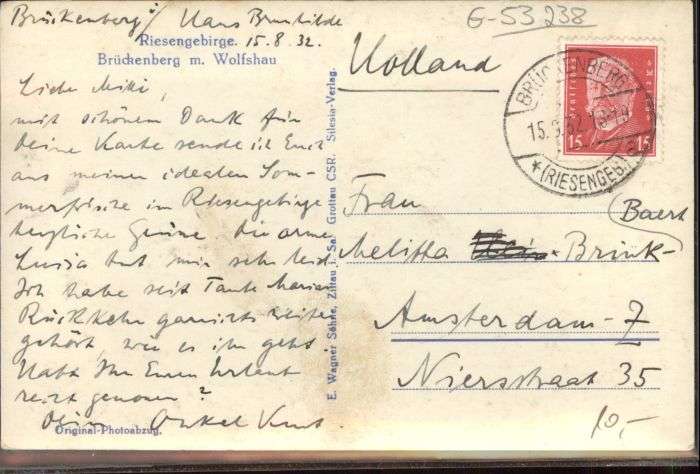 G-53238
Brückenberg / Haus Brunhilde
15.8.32.
Riesengebirge.
Brückenberg m. Wolfshau
Liebe Melli,
mit schönem Dank für
Deine Karte sende ich Euch
aus meiner idealen Som-
merfrische im Riesengebirge
herzliche Grüsse. Die arme
Luzia tut mir sehr leid
Ich habe seit Tante Marias
Rückkehr garnichts weiter
gehört, wie es ihr geht.
Habt Ihr Euren Urlaub
recht genossen?
Dein Onkel Kurt.
Original-Photoabzug.
E. Wagner Söhne, Zittau i. Sa. Grottau CSR. Silesia-Verlag.
Holland
BRÜCKENBERG
15.8.32
*(RIESENGEB.)
15 15
Frau
Melitta Brink-
Baert
Amsterdam-Z
Nierstraat 35
10,-